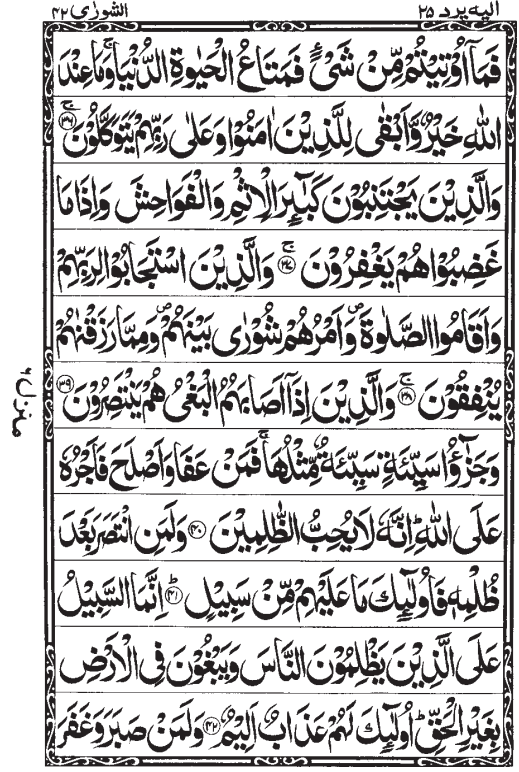 الیه یرد ۲۵
الشورٰی ۴۲
فَمَاۤ اُوْتِیْتُمْ مِّنْ شَیْءٍ فَمَتَاعُ الْحَیٰوةِ الدُّنْیَا ۚ وَمَا عِنْدَ
اللّٰهِ خَیْرٌ وَّاَبْقٰی لِلَّذِیْنَ اٰمَنُوْا وَعَلٰی رَبِّهِمْ یَتَوَكَّلُوْنَ ۚ﴿۳۶﴾
وَالَّذِیْنَ یَجْتَنِبُوْنَ كَبٰٓىِٕرَ الْاِثْمِ وَالْفَوَاحِشَ وَاِذَا مَا
غَضِبُوْا هُمْ یَغْفِرُوْنَ ۚ﴿۳۷﴾ وَالَّذِیْنَ اسْتَجَابُوْا لِرَبِّهِمْ
وَاَقَامُوا الصَّلٰوةَ ۪ وَاَمْرُهُمْ شُوْرٰی بَیْنَهُمْ ۪ وَمِمَّا رَزَقْنٰهُمْ
یُنْفِقُوْنَ ۚ﴿۳۸﴾ وَالَّذِیْنَ اِذَاۤ اَصَابَهُمُ الْبَغْیُ هُمْ یَنْتَصِرُوْنَ ﴿۳۹﴾
وَجَزٰٓؤُا سَیِّئَةٍ سَیِّئَةٌ مِّثْلُهَا ۚ فَمَنْ عَفَا وَاَصْلَحَ فَاَجْرُهٗ
عَلَی اللّٰهِ ؕ اِنَّهٗ لَا یُحِبُّ الظّٰلِمِیْنَ ﴿۴۰﴾ وَلَمَنِ انْتَصَرَ بَعْدَ
ظُلْمِهٖ فَاُولٰٓىِٕكَ مَا عَلَیْهِمْ مِّنْ سَبِیْلٍ ؕ﴿۴۱﴾ اِنَّمَا السَّبِیْلُ
عَلَی الَّذِیْنَ یَظْلِمُوْنَ النَّاسَ وَیَبْغُوْنَ فِی الْاَرْضِ
بِغَیْرِ الْحَقِّ ؕ اُولٰٓىِٕكَ لَهُمْ عَذَابٌ اَلِیْمٌ ﴿۴۲﴾ وَلَمَنْ صَبَرَ وَغَفَرَ
منزل ۶